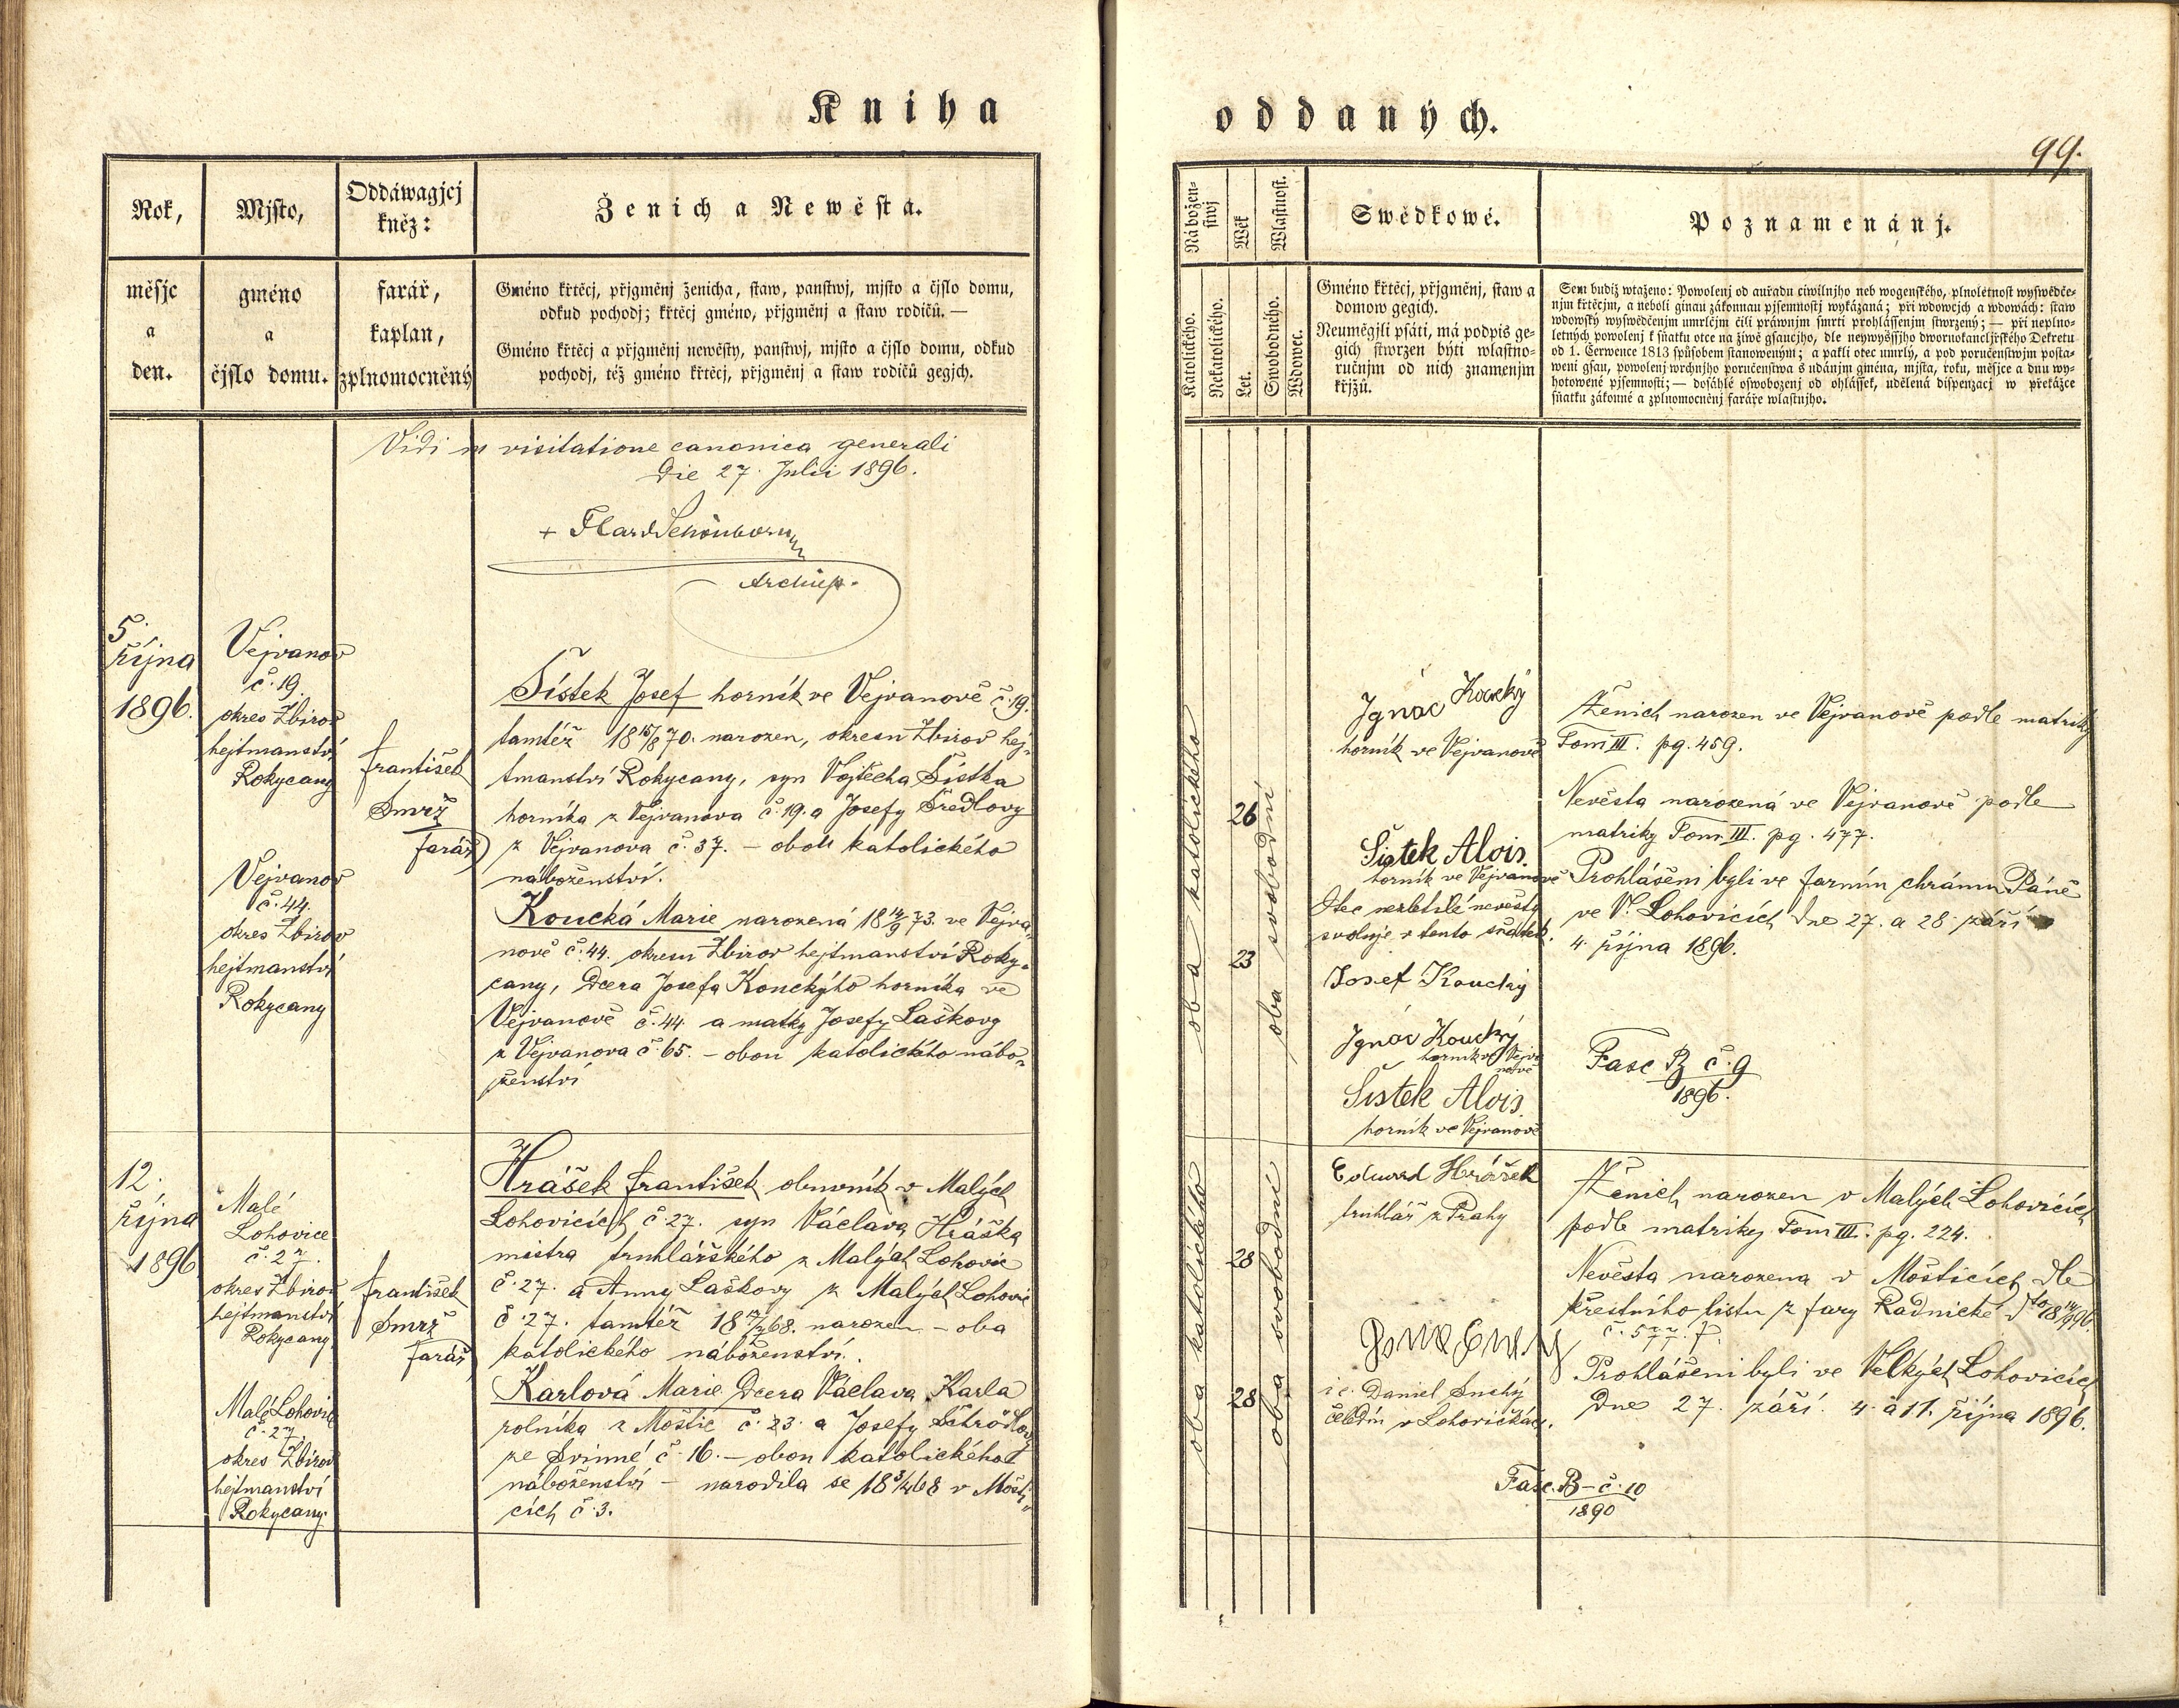 Kniha
Rok,
Mjsto,
Oddáwagjcj
kněz:
Ženich a Newěsta.
měsjc
a
den.
gméno
a
čjslo domu.
farář,
kaplan,
zplnomocněný
Gméno křtěcj, přjgměnj ženicha, staw, panstwj, mjsto a čjslo domu,
odkud pochodj; křtěcj gméno, přjgměnj a staw rodičů. —
Gméno křtěcj a přjgměnj newěsty, panstwj, mjsto a čjslo domu, odkud
pochodj, též gméno křtěcj, přjgměnj a staw rodičů gegjch.
Vidi in visitatione canonica generali
Die 27. Julii 1896.
+ FCardSchönborn
Archiep.
5.
října
1896.
Vejvanov
č. 19.
okres Zbirov
hejtmanství
Rokycany
František
Smrž
farář
Šístek Josef horník ve Vejvanově č. 19.
tamtéž 18 15/8 70. narozen, okresu Zbirov hej-
tmanství Rokycany, syn Vojtěcha Šístka
horníka z Vejvanova č. 19. a Josefy Šredlovy
z Vejvanova č. 37. – obou katolického
náboženství.
Vejvanov
č. 44.
okres Zbirov
hejtmanství
Rokycany
Koucká Marie narozená 18 14/9 73. ve Vejva-
nově č. 44. okresu Zbirov hejtmanství Roky-
cany, Dcera Josefa Kouckýho horníka ve
Vejvanově č. 44. a matky Josefy Laškovy
z Vejvanova č. 65. – obou katolického nábo-
ženství
12.
října
1896
Malé
Lohovice
č. 27.
okres Zbirov
hejtmanství
Rokycany.
František
Smrž
farář
Hrášek František obuvník v Malých
Lohovicích č. 27. syn Václava Hráška
mistra truhlářského z Malých Lohovic
č. 27. a Anny Laškovy z Malých Lohovic
č. 27. tamtéž 18 68. narozen – oba
katolického náboženství.
Malé Lohovic
č. 27.
okres Zbirov
hejtmanství
Rokycany.
Karlová Marie Dcera Václava Karla
rolníka z Moštic č. 23. a Josefy
ze Svinné č. 16. – obou katolického
náboženství – narodila se 18 3/4 68 v Mošti-
cích č. 3.
oddaných.
99.
Náboženstwj
Wěk
Wlastnost.
Swědkowé.
Poznamenánj.
Katolického.
Nekatolického.
Let.
Swobodného.
Wdowec.
Gméno křtěcj, přjgměnj, staw a
domow gegich.
Neumějgjli psáti, má podpis ge-
gich stwrzen býti wlastno-
ručnjm od nich znamenjm
křjžů.
Sem budiž wtaženo: Powolenj od auřadu ciwilnjho neb wogenského, plnoletnost wyswědče-
njm křtěcjm, a neboli ginau zákonnau pjsemnostj wykázaná; při wdowcjch a wdowách: staw
wdowský wyswědčenjm umrlčjm čili práwnjm smrti prohlássenjm stwrzený; — při neplno-
letných powolenj k sňatku otce na žiwě gsaucjho, dle neywyššjho dwornokancljřského Dekretu
od 1. Cerwence 1813 spůsobem stanoweným; a pakli otec umrlý, a pod poručenstwjm posta-
weni gsau, powolenj wrchnjho poručenstwa s udánjm gména, mjsta, roku, měsjce a dnu wy-
hotowené pjsemnosti; — dosáhlé oswobozenj od ohlássek, udělená dispenzacj w překážce
sňatku zákonné a zplnomocněnj faráře wlastnjho.
oba katolického
26
23
oba svobodní
Ignác Koucký
horník ve Vejvanově
Šistek Alois.
horník ve Vejvanově
Otec nezletilé nevěsty
svoluje v tento sňatek.
Josef Koucký
Ignác Koucký
horník ve Vejva
nově
Šistek Alois.
horník ve Vejvanově
Ženich narozen ve Vejvanově podle matriky
Tom III. pg. 459.
Nevěsta narozená ve Vejvanově podle
matriky Tom III. pg. 477.
Prohlášeni byli ve farním chrámu Páně
ve V. Lohovicích dne 27. a 28 září
4. října 1896.
Fasc B č. 9
1896.
oba katolického
28
28
oba svobodní
Eduard Hrášek
truhlář z Prahy
Daniel Suchý
čeledín v Lohovičkách.
Ženich narozen v Malých Lohovicích
podle matriky Tom III. pg. 224.
Nevěsta narozena v Mošticích dle
křestního listu z fary Radnické
č. 577.
Prohlášeni byli ve Velkých Lohovicích
Dne 27. září. 4. a 11. října 1896.
Fasc. B – č. 10
1890